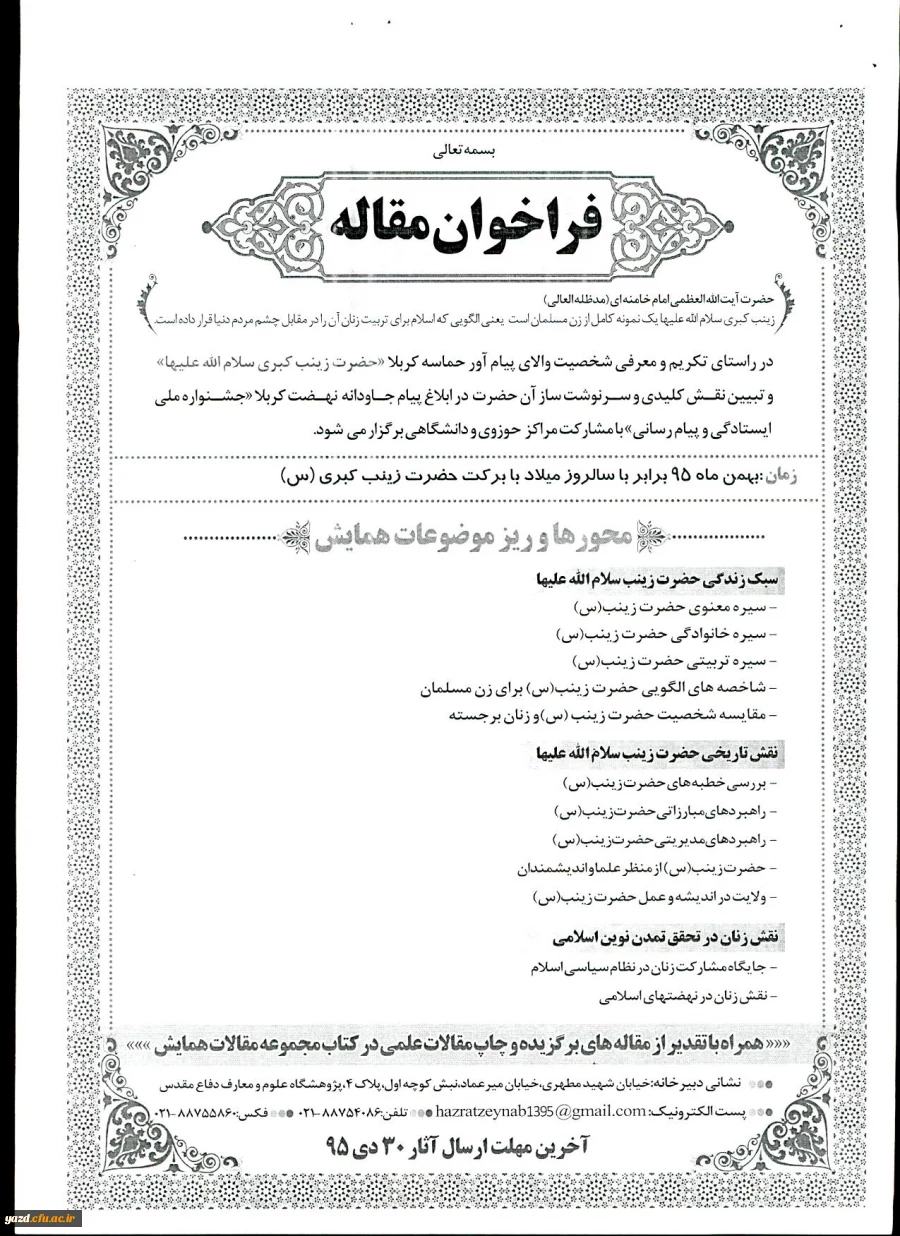 بسمه تعالی
فراخوان مقاله
حضرت آیت الله العظمی امام خامنه ای (مدظله العالی)
زینب کبری سلام الله علیها یک نمونه کامل از زن مسلمان است یعنی الگویی که اسلام برای تربیت زنان آن را در مقابل چشم مردم دنیا قرار داده است.
در راستای تکریم و معرفی شخصیت والای پیام آور حماسه کربلا «حضرت زینب کبری سلام الله علیها»
و تبیین نقش کلیدی و سرنوشت ساز آن حضرت در ابلاغ پیام جاودانه نهضت کربلا «جشنواره ملی
ایستادگی و پیام رسانی» با مشارکت مراکز حوزوی و دانشگاهی برگزار می شود.
زمان: بهمن ماه ۹۵ برابر با سالروز میلاد با برکت حضرت زینب کبری (س)
محورها و ریز موضوعات همایش
سبک زندگی حضرت زینب سلام الله علیها
- سیره معنوی حضرت زینب(س)
- سیره خانوادگی حضرت زینب(س)
- سیره تربیتی حضرت زینب(س)
- شاخصه های الگویی حضرت زینب(س) برای زن مسلمان
- مقایسه شخصیت حضرت زینب (س) و زنان برجسته
نقش تاریخی حضرت زینب سلام الله علیها
- بررسی خطبه های حضرت زینب(س)
- راهبردهای مبارزاتی حضرت زینب(س)
- راهبردهای مدیریتی حضرت زینب(س)
- حضرت زینب(س) از منظر علما و اندیشمندان
- ولایت در اندیشه و عمل حضرت زینب(س)
نقش زنان در تحقق تمدن نوین اسلامی
- جایگاه مشارکت زنان در نظام سیاسی اسلام
- نقش زنان در نهضتهای اسلامی
««« همراه با تقدیر از مقاله های برگزیده و چاپ مقالات علمی در کتاب مجموعه مقالات همایش »»»
نشانی دبیرخانه: خیابان شهید مطهری، خیابان میرعماد، نبش کوچه اول، پلاک ۴، پژوهشگاه علوم و معارف دفاع مقدس
پست الکترونیک: hazratzeynab1395@gmail.com تلفن: ۸۸۷۵۴۰۸۶-۰۲۱ فکس: ۸۸۷۵۵۸۶۰-۰۲۱
آخرین مهلت ارسال آثار ۳۰ دی ۹۵
yazd.cfu.ac.ir